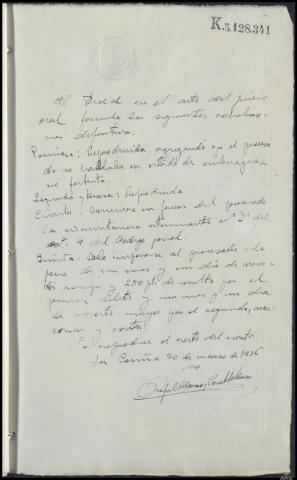 K.5.128.341
El Fiscal en el acto del juicio
oral formula las siguientes conclusio-
nes definitivas.
Primera: Reproducida, agregando que el procesa-
do se hallaba en estado de embriaguez
no fortuita.
Segunda y tercera: Reproducida
Cuarta: Concurre en favor del procesado
la circunstancia atenuante nº 2º del
artº 9 del Código penal.
Quinta: Debe imponerse al procesado la
pena de un mes y un día de arres-
to mayor y 250 pts de multa por el
primer delito y un mes y un día
de arresto mayor por el segundo, acce-
sorias y costas.
Se reproduce el resto del escrito.
La Coruña 20 de marzo de 1936